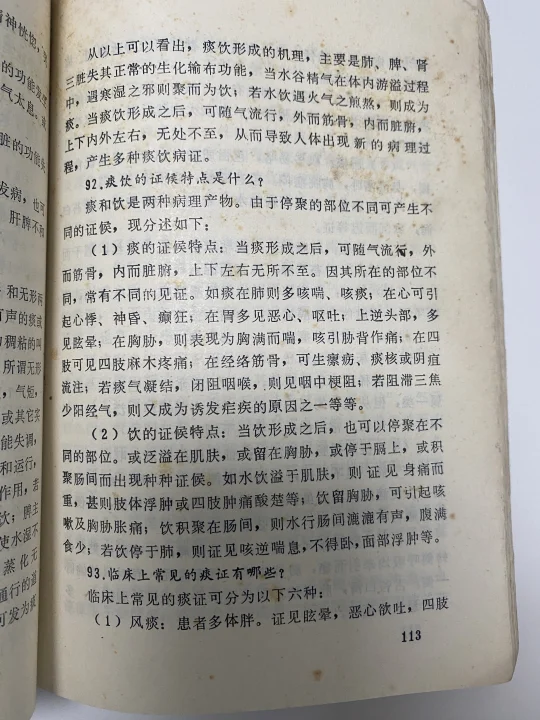 从以上可以看出，痰饮形成的机理，主要是肺、脾、肾
三脏失其正常的生化输布功能，当水谷精气在体内游溢过程
中，遇寒湿之邪则聚而为饮；若水饮遇火气之煎熬，则成为
痰。当痰饮形成之后，可随气流行，外而筋骨，内而脏腑，
上下内外左右，无处不至，从而导致人体出现新的病理过
程，产生多种痰饮病证。
92.痰饮的证候特点是什么？
痰和饮是两种病理产物。由于停聚的部位不同可产生不
同的证候，现分述如下：
（1）痰的证候特点：当痰形成之后，可随气流行，外
而筋骨，内而脏腑，上下左右无所不至。因其所在的部位不
同，常有不同的见证。如痰在肺则多咳喘、咳痰；在心可引
起心悸、神昏、癫狂；在胃多见恶心、呕吐；上逆头部，多
见眩晕；在胸胁，则表现为胸满而喘，咳引胁背作痛；在四
肢可见四肢麻木疼痛；在经络筋骨，可生瘰疬、痰核或阴疽
流注；若痰气凝结，闭阻咽喉，则见咽中梗阻；若阻滞三焦
少阳经气，则又成为诱发疟疾的原因之一等等。
（2）饮的证候特点：当饮形成之后，也可以停聚在不
同的部位。或泛溢在肌肤，或留在胸胁，或停于膈上，或积
聚肠间而出现种种证候。如水饮溢于肌肤，则证见身痛而
重，甚则肢体浮肿或四肢肿痛酸楚等；饮留胸胁，可引起咳
嗽及胸胁胀痛；饮积聚在肠间，则水行肠间漉漉有声，腹满
食少；若饮停于肺，则证见咳逆喘息，不得卧，面部浮肿等。
93.临床上常见的痰证有哪些？
临床上常见的痰证可分为以下六种：
（1）风痰：患者多体胖。证见眩晕，恶心欲吐，四肢
113